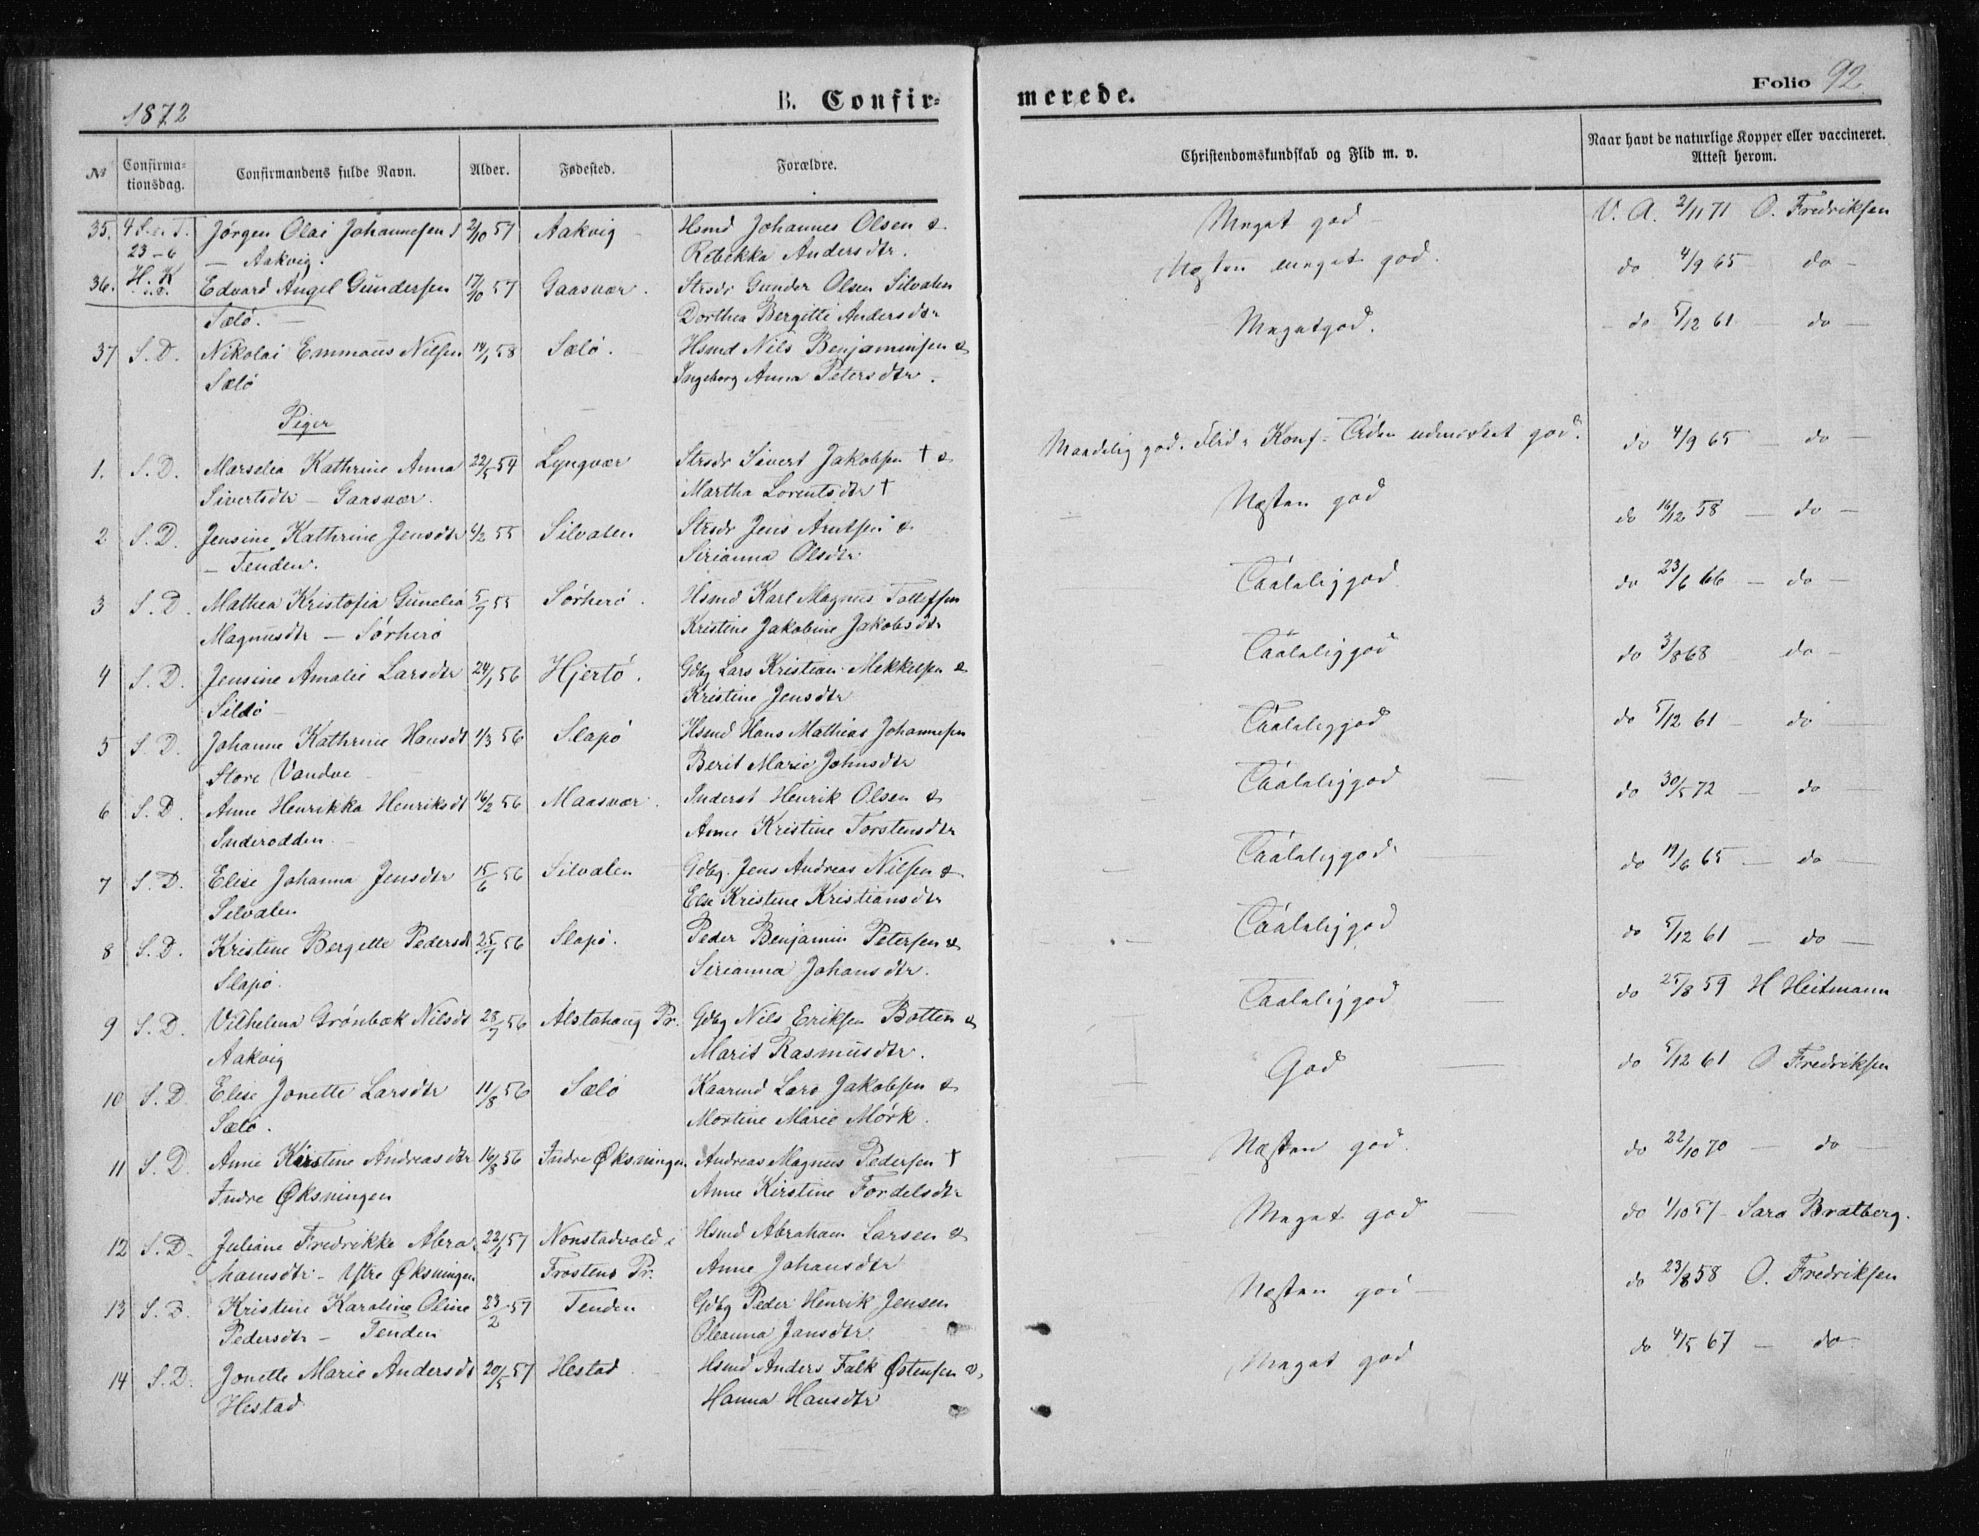 1872
B. Confir-
merede.
Folio 92
No
Confirma-
tionsdag.
Confirmandens fulde Navn.
Alder.
Fødested.
Forældre.
Christendomskundskab og Flid m. v.
Naar havt de naturlige Kopper eller vaccineret.
Attest herom.
35. 4 S. e. T. Jørgen Olai Johannesen 2/10 57 Aakvig Hsmd Johannes Olsen & Meget god V. A. 2/11 71 O. Fredriksen
23-6 — Aakvig. Rebekka Andersdtr.
36. H. K Edvard Angel Gundersen 17/10 57 Gaasvær. Strsdr Gunder Olsen Silvalen Næsten meget god. do 4/9 65 do
Sælø. Dorthea Bergitte Andersdtr
37 S. D. Nikolai Emmaus Nilsen 14/1 58 Sælø. Hsmd Nils Benjaminsen & Megetgod. do 5/12 61 do
Sælø Ingeborg Anna Petersdtr.
Piger
1. S. D. Marselia Kathrine Anna 22/5 54 Lyngvær Strsdr Sivert Jakobsen † & Maadelig god. Flid i Konf. Tiden udmærket god. do 4/9 65 do
Sivertsdtr — Gaasvær. Martha Lorentsdtr †
2 S. D. Jensine Kathrine Jensdtr 6/2 55 Silvalen Strsdr Jens Arntsen & Næsten god do 16/12 58 do
— Tenden. Sirianna Olsdtr
3 S. D. Mathea Kristofia Gunelia 5/7 55 Sørherø. Hsmd Karl Magnus Tollefsen Taaleliggod do 23/6 66 do
Magnusdtr — Sørherø Kristine Jakobine Jakobsdtr
4 S. D. Jensine Amalie Larsdtr 24/1 56 Hjertø. Gdbg Lars Kristian Mekkelsen & Taaleliggod do 3/8 68 do
Sildø Kristine Jensdtr
5 S. D. Johanne Kathrine Hansdt 1/3 56 Slapø Hsmd Hans Mathias Johannesen Taaleliggod do 5/12 61 do
Store Vandve Berit Marie Johnsdtr
6 S. D. Anne Henrikka Henriksdt 16/2 56 Maasvær. Inderst Henrik Olsen & Taaleliggod do 30/5 72 do
Inderodden Anne Kristine Torstensdtr
7 S. D. Elise Johanna Jensdtr 15/6 56 Silvalen Gdbg. Jens Andreas Nilsen & Taaleliggod do 19/6 65 do
Silvalen Else Kristine Kristiansdtr
8 S. D. Kristine Bergitte Pedersdt 25/7 56 Slapø. Peder Benjamin Petersen & Taaleliggod do 5/12 61 do
Slapø. Sirianna Johansdtr.
9 S. D. Vilhelma Grønbæk Nilsdt 28/7 56 Alstahaug Pr. Gdbg Nils Eriksen Botten & Taaleliggod do 25/8 59 H Heitmann
Aakvig Marit Rasmusdtr.
10 S. D. Elise Jonette Larsdtr 11/8 56 Sælø Kaarmd Lars Jakobsen & God do 5/12 61 O Fredriksen
Sælø. Mortine Marie Mørk.
11 S. D. Anne Kirstine Andreasdtr 16/8 56 Indre Øksningen Andreas Magnus Pedersen † Næsten god. do 22/10 70 do
Indre Øksningen Anne Kirstine Fordelsdtr
12 S. D. Juliane Fredrikke Abra- 22/1 57 Nonstadvold i Hsmd Abraham Larsen & Meget god do 1/10 57 Sara Bratberg.
hamsdtr — Ytre Øksningen Frostens Pr. Anne Johansdtr
13 S. D. Kristine Karoline Oline 23/2 57 Tenden Gdbg Peder Henrik Jensen Næsten god do 23/8 58 O. Fredriksen
Pedersdtr — Tenden Oleanna Jansdtr
14 S. D. Jonette Marie Andersdt 20/5 57 Hestad Hsmd Anders Falk Østensen & Meget god do 4/5 67 do
Hestad Hanna Hansdtr